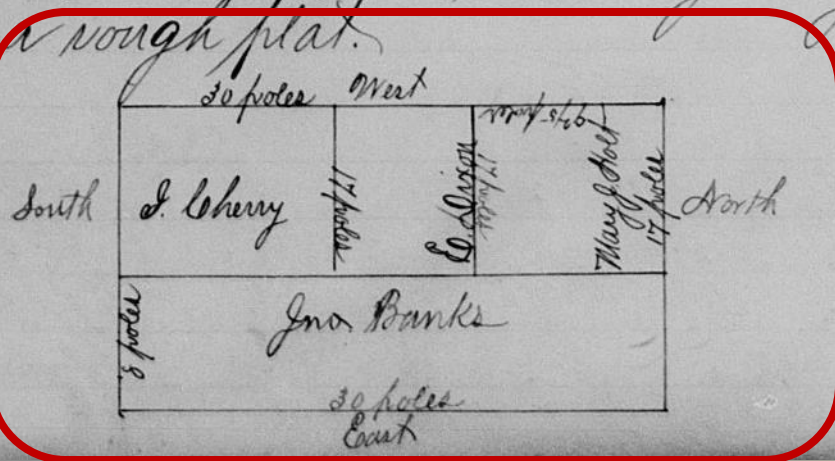 a rough plat.
30 poles West
South
I. Cherry
17 poles
E. Dixon
17 poles
Mary J. Holt
17 poles
North
8 poles
Jno Banks
30 poles
East